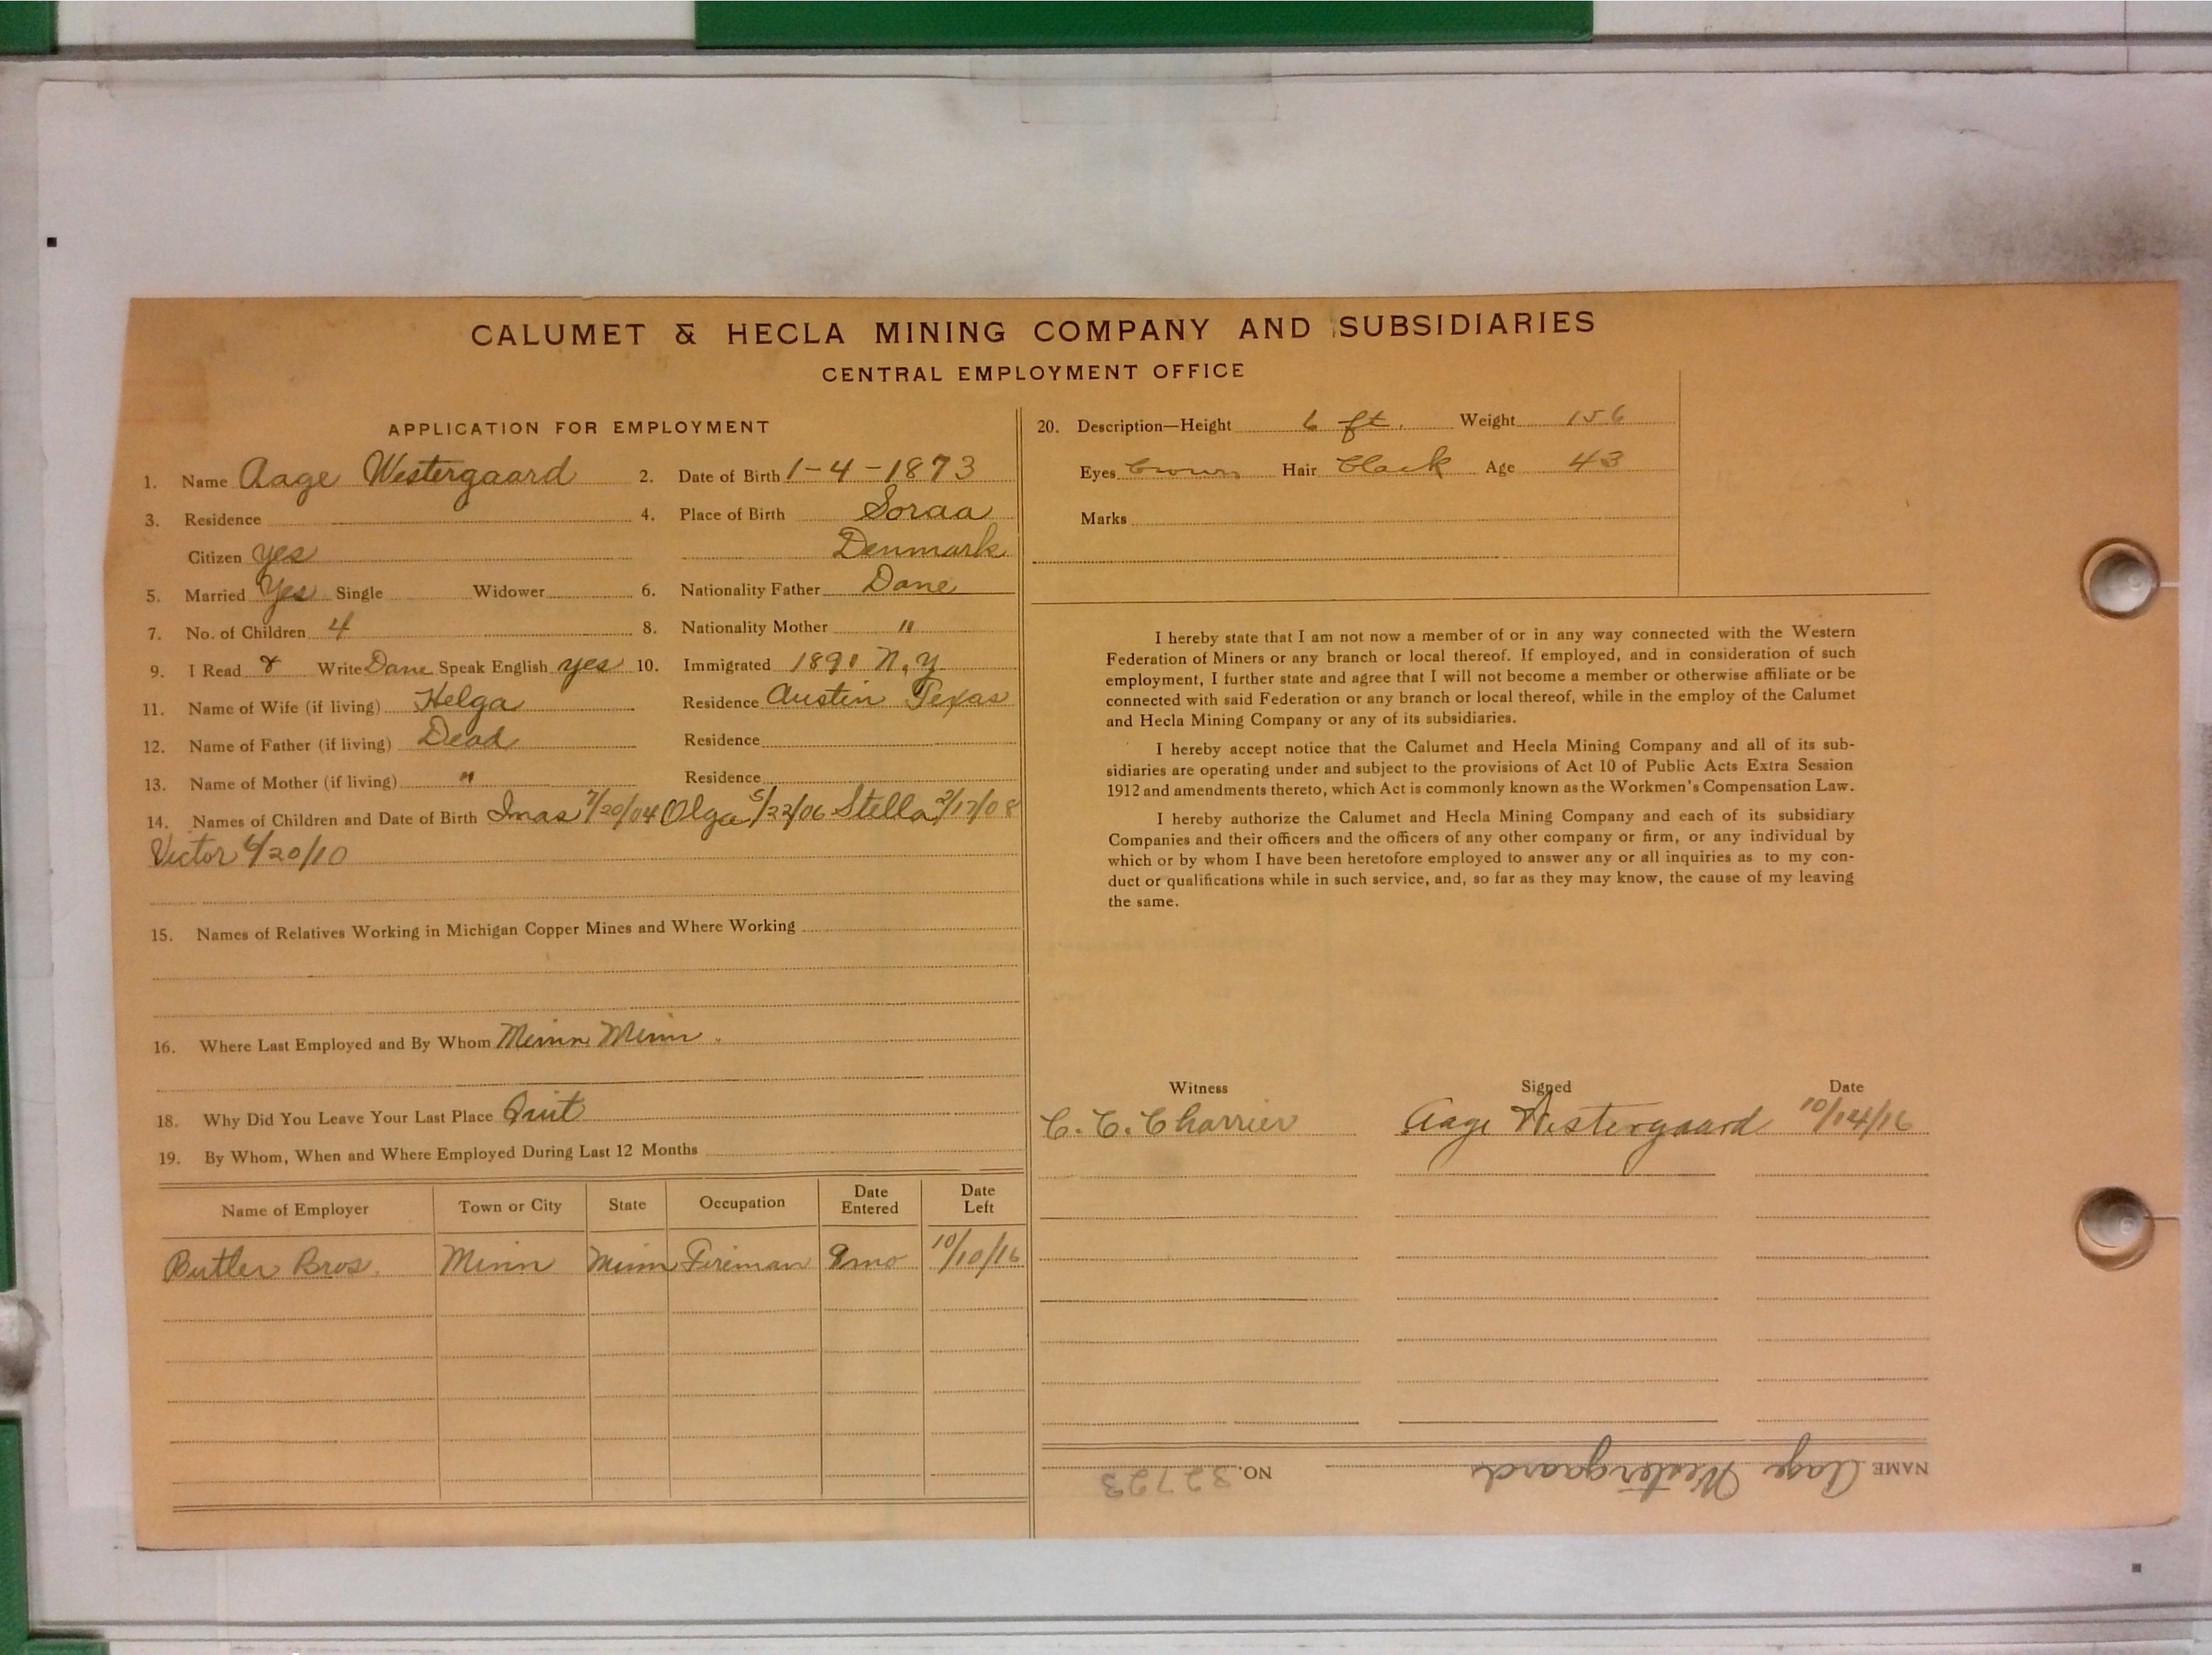 CALUMET & HECLA MINING COMPANY AND SUBSIDIARIES
CENTRAL EMPLOYMENT OFFICE
APPLICATION FOR EMPLOYMENT
1. Name Aage Westergaard 2. Date of Birth 1-4-1873
3. Residence 4. Place of Birth Soraa
Citizen yes Denmark
5. Married Yes Single Widower 6. Nationality Father Dane
7. No. of Children 4 8. Nationality Mother "
9. I Read & Write Dane Speak English yes 10. Immigrated 1891 N.Y
11. Name of Wife (if living) Helga Residence Austin Texas
12. Name of Father (if living) Dead Residence
13. Name of Mother (if living) " Residence
14. Names of Children and Date of Birth Inas 7/20/04 Olga 5/22/06 Stella 2/17/08
Victor 6/20/10
15. Names of Relatives Working in Michigan Copper Mines and Where Working
16. Where Last Employed and By Whom Minn Minn.
18. Why Did You Leave Your Last Place Quit
19. By Whom, When and Where Employed During Last 12 Months
Name of Employer Town or City State Occupation Date Entered Date Left
Butler Bros. Minn Minn Fireman 9mo 10/10/16
20. Description—Height 6 ft. Weight 156
Eyes brown Hair black Age 43
Marks
I hereby state that I am not now a member of or in any way connected with the Western
Federation of Miners or any branch or local thereof. If employed, and in consideration of such
employment, I further state and agree that I will not become a member or otherwise affiliate or be
connected with said Federation or any branch or local thereof, while in the employ of the Calumet
and Hecla Mining Company or any of its subsidiaries.
I hereby accept notice that the Calumet and Hecla Mining Company and all of its sub-
sidiaries are operating under and subject to the provisions of Act 10 of Public Acts Extra Session
1912 and amendments thereto, which Act is commonly known as the Workmen's Compensation Law.
I hereby authorize the Calumet and Hecla Mining Company and each of its subsidiary
Companies and their officers and the officers of any other company or firm, or any individual by
which or by whom I have been heretofore employed to answer any or all inquiries as to my con-
duct or qualifications while in such service, and, so far as they may know, the cause of my leaving
the same.
Witness Signed Date
C. C. Charrier Aage Westergaard 10/14/16
NAME Aage Westergaard NO. 32723